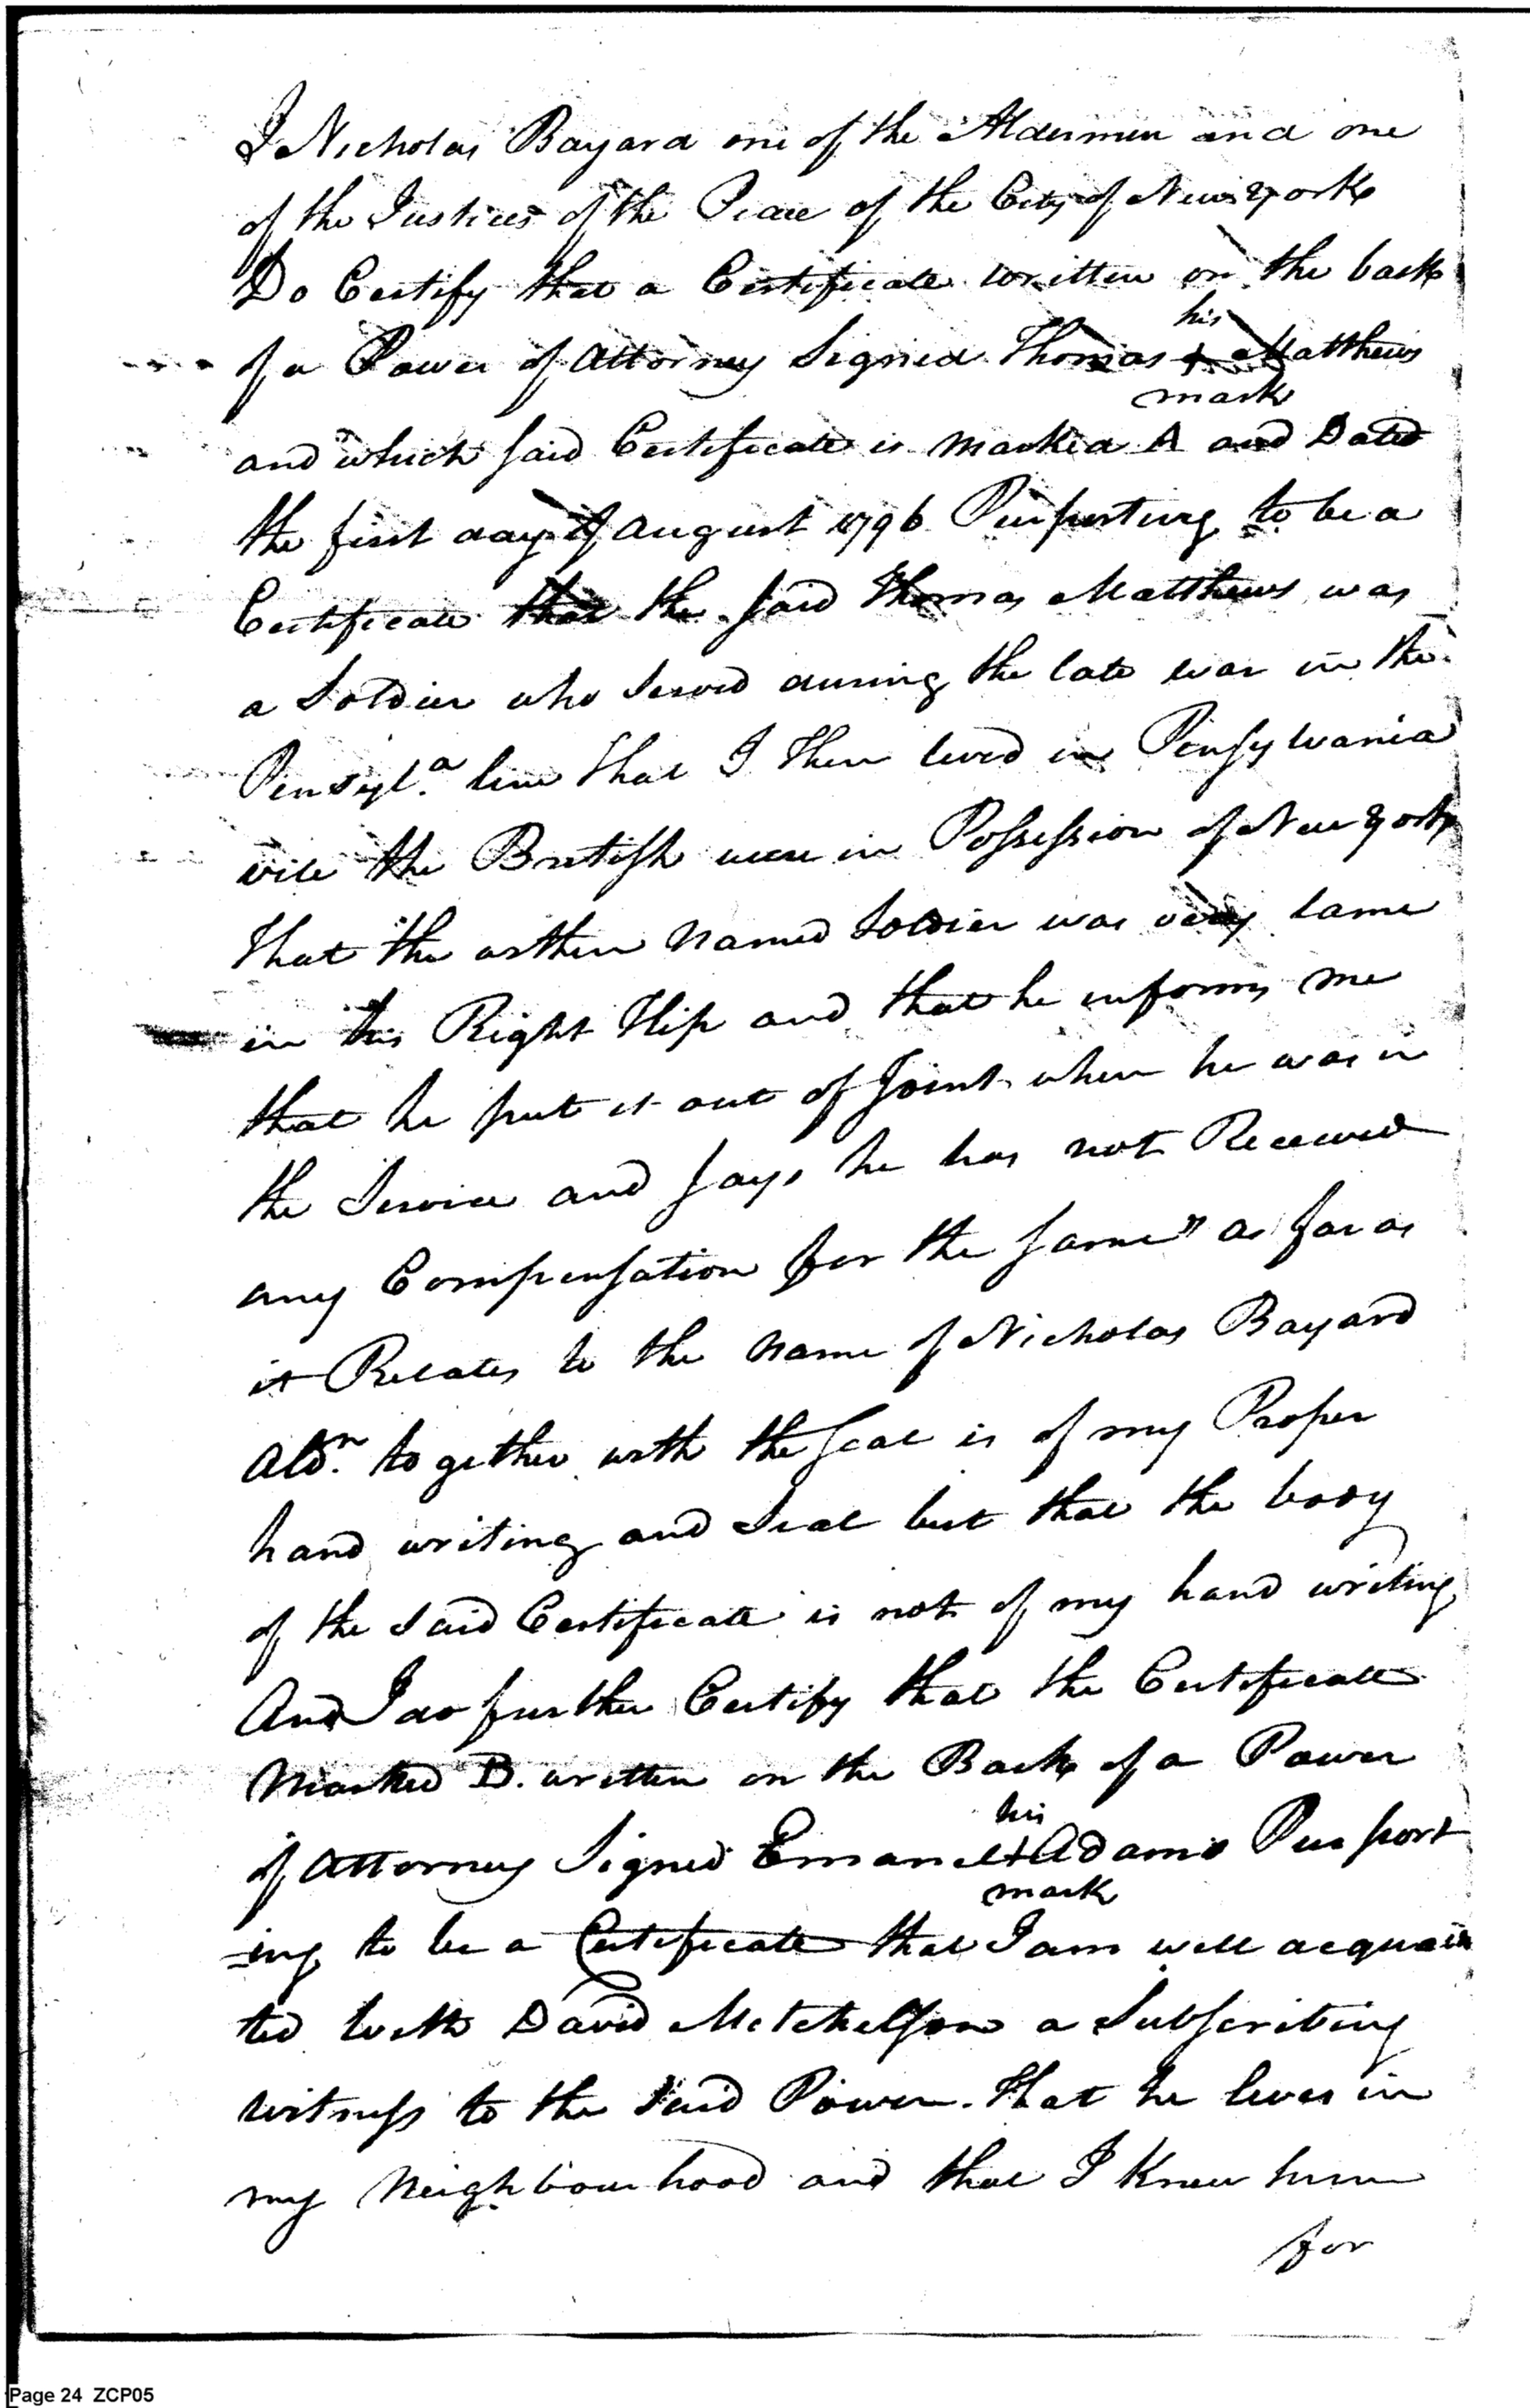 I Nicholas Bayard one of the Aldermen and one
of the Justices of the Peace of the City of New York
Do Certify that a Certificate written on the back
of a Power of Attorney Signed Thomas his + mark Matthews
and which said Certificate is marked A and Dated
the first day of August 1796 Purporting to be a
Certificate that the said Thomas Matthews was
a Soldier who Served during the late war in the
Pensyl.a line that I then lived in Pensylvania
wile the British were in Possession of New York
that the within named Soldier was very lame
in his Right Hip and that he informs me
that he put it out of Joint when he was in
the Service and says he has not Received
any Compensation for the same" as far as
it Relates to the name of Nicholas Bayard
Ald.n together with the seal is of my Proper
hand writing and Seal but that the body
of the said Certificate is not of my hand writing
And I do further Certify that the Certificate
Marked B. written on the Back of a Power
of Attorney Signed Emanel his + mark Adams Purport
-ing to be a Certificate that I am well acquain
ted with David Mitchelson a Subscribing
witness to the said Power. that he lives in
my Neighbourhood and that I knew him
for
Page 24 ZCP05